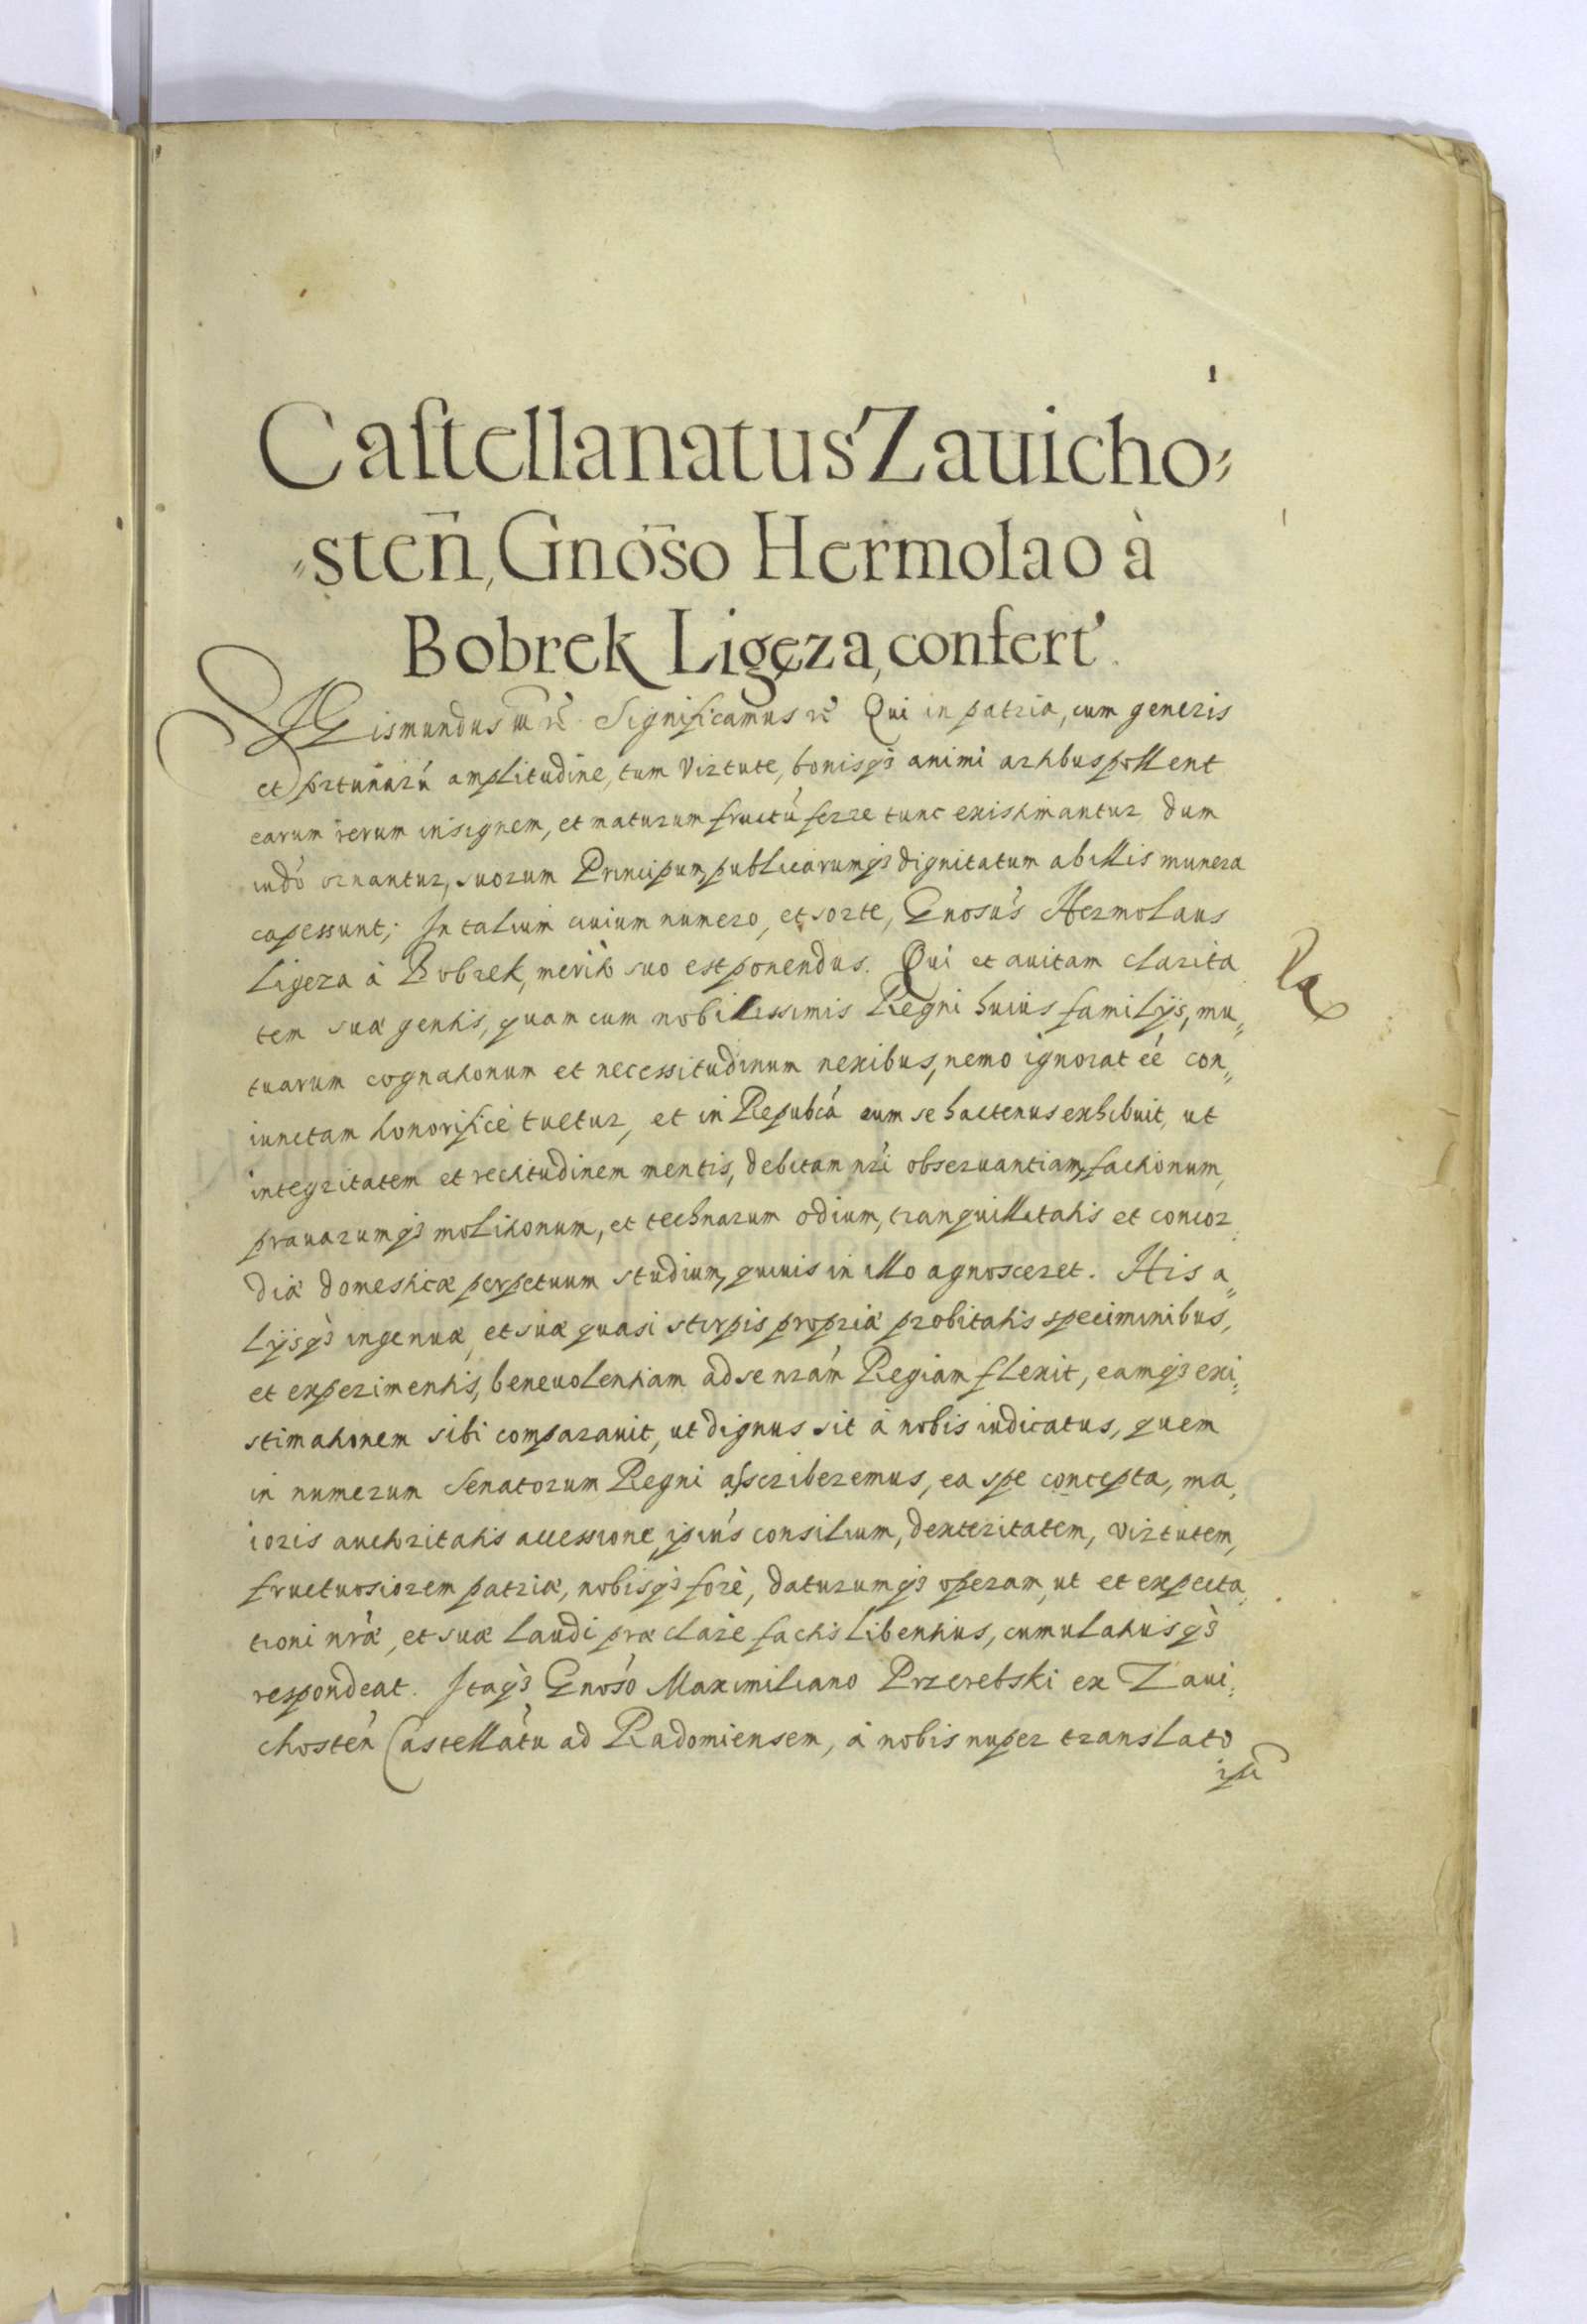 1
Castellanatus Zauicho⸗
⸗sten̄, Gnōso Hermolao à
Bobrek Ligęza, confert'.
SIGismundus III rc̃. Significamus rc̃ Qui in patria, cum generis
et fortunarú amplitudine, tum virtute, bonisq́3 animi artibus pollent
earum rerum insignem, et maturum fructú ferre tunc existimantur, dum
iudó ornantur, suorum Principum, publicarumq3 dignitatum ab illis munera
capessunt; In talium ciuium numero, et sorte, Gnosús Hermolaus
Ligeza à Bobrek, meritò suo est ponendus. Qui et auitam clarita
tem suæ gentis, quam cum nobilissimis Regni huius familijs, mu⸗
tuarum cognationum et necessitudinum nexibus, nemo ignorat éé con⸗
iunctam honorificè tuetur, et in Repubĺcá eum se hactenus exhibuit, ut
integritatem et rectitudinem mentis, debitam nr̃i obseruantiam, factionum,
prauarumq3 molitionum, et technarum odium, tranquillitatis et concor
diæ domesticæ perpetuum studium, quiuis in illo agnosceret. His a⸗
lijsq3 ingenuæ, et suæ quasi stirpis propriæ probitatis speciminibus,
et experimentis, beneuolentiam ad se nrám Regiam flexit, eamq3 exi⸗
stimationem sibi comparauit, ut dignus sit à nobis iudicatus, quem
in numerum Senatorum Regni ascriberemus, ea spe concepta, ma
ioris authoritatis accessione, ipiús consilium, dexteritatem, virtutem,
fructuosiorem patriæ, nobisq3 forè, daturumq3 operam, ut et expecta
tioni nr̃æ, et suæ laudi præclarè factis libentius, cumulatiusq3
respondeat. Itaq3 Gnosó Maximiliano Przerebski ex Zaui⸗
chostén Castellátu ad Radomiensem, à nobis nuper translato